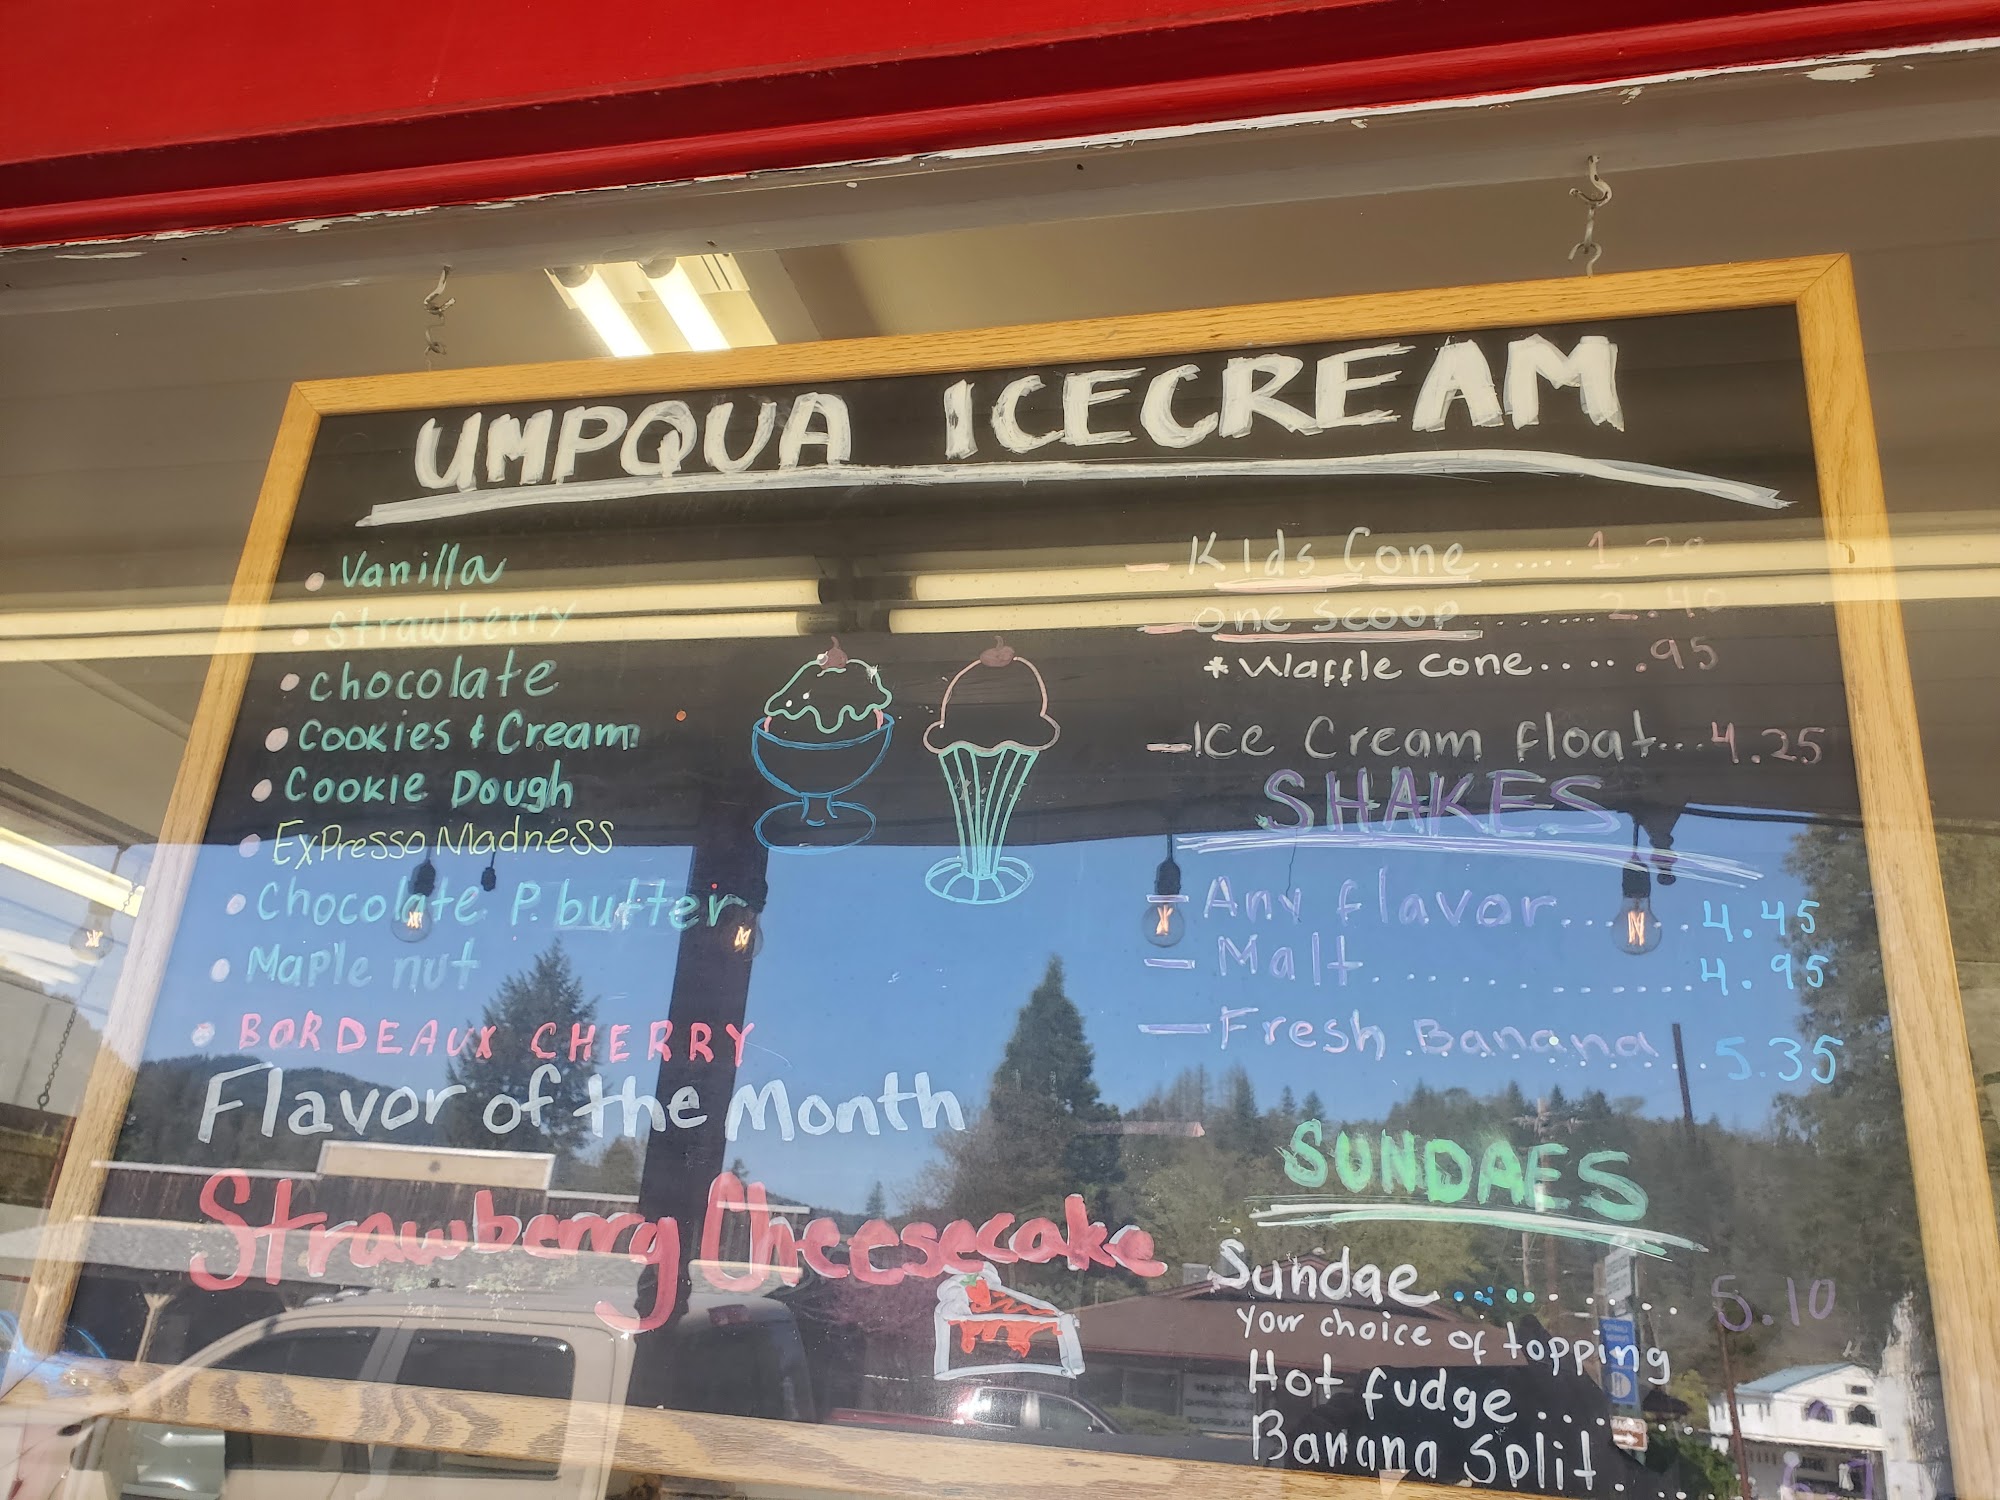 UMPQUA ICECREAM
• Vanilla
• Strawberry
• Chocolate
• Cookies & Cream
• Cookie Dough
• ExPresso Madness
• Chocolate P. butter
• Maple nut
• BORDEAUX CHERRY
Flavor of the Month
Strawberry Cheesecake
- Kids Cone...... 1.20
- One Scoop........ 2.40
* Waffle cone..... .95
- Ice Cream float... 4.25
SHAKES
- Any flavor....... 4.45
- Malt............... 4.95
- Fresh Banana... 5.35
SUNDAES
Sundae.......... 5.10
Your choice of topping
Hot fudge.....
Banana Split.....